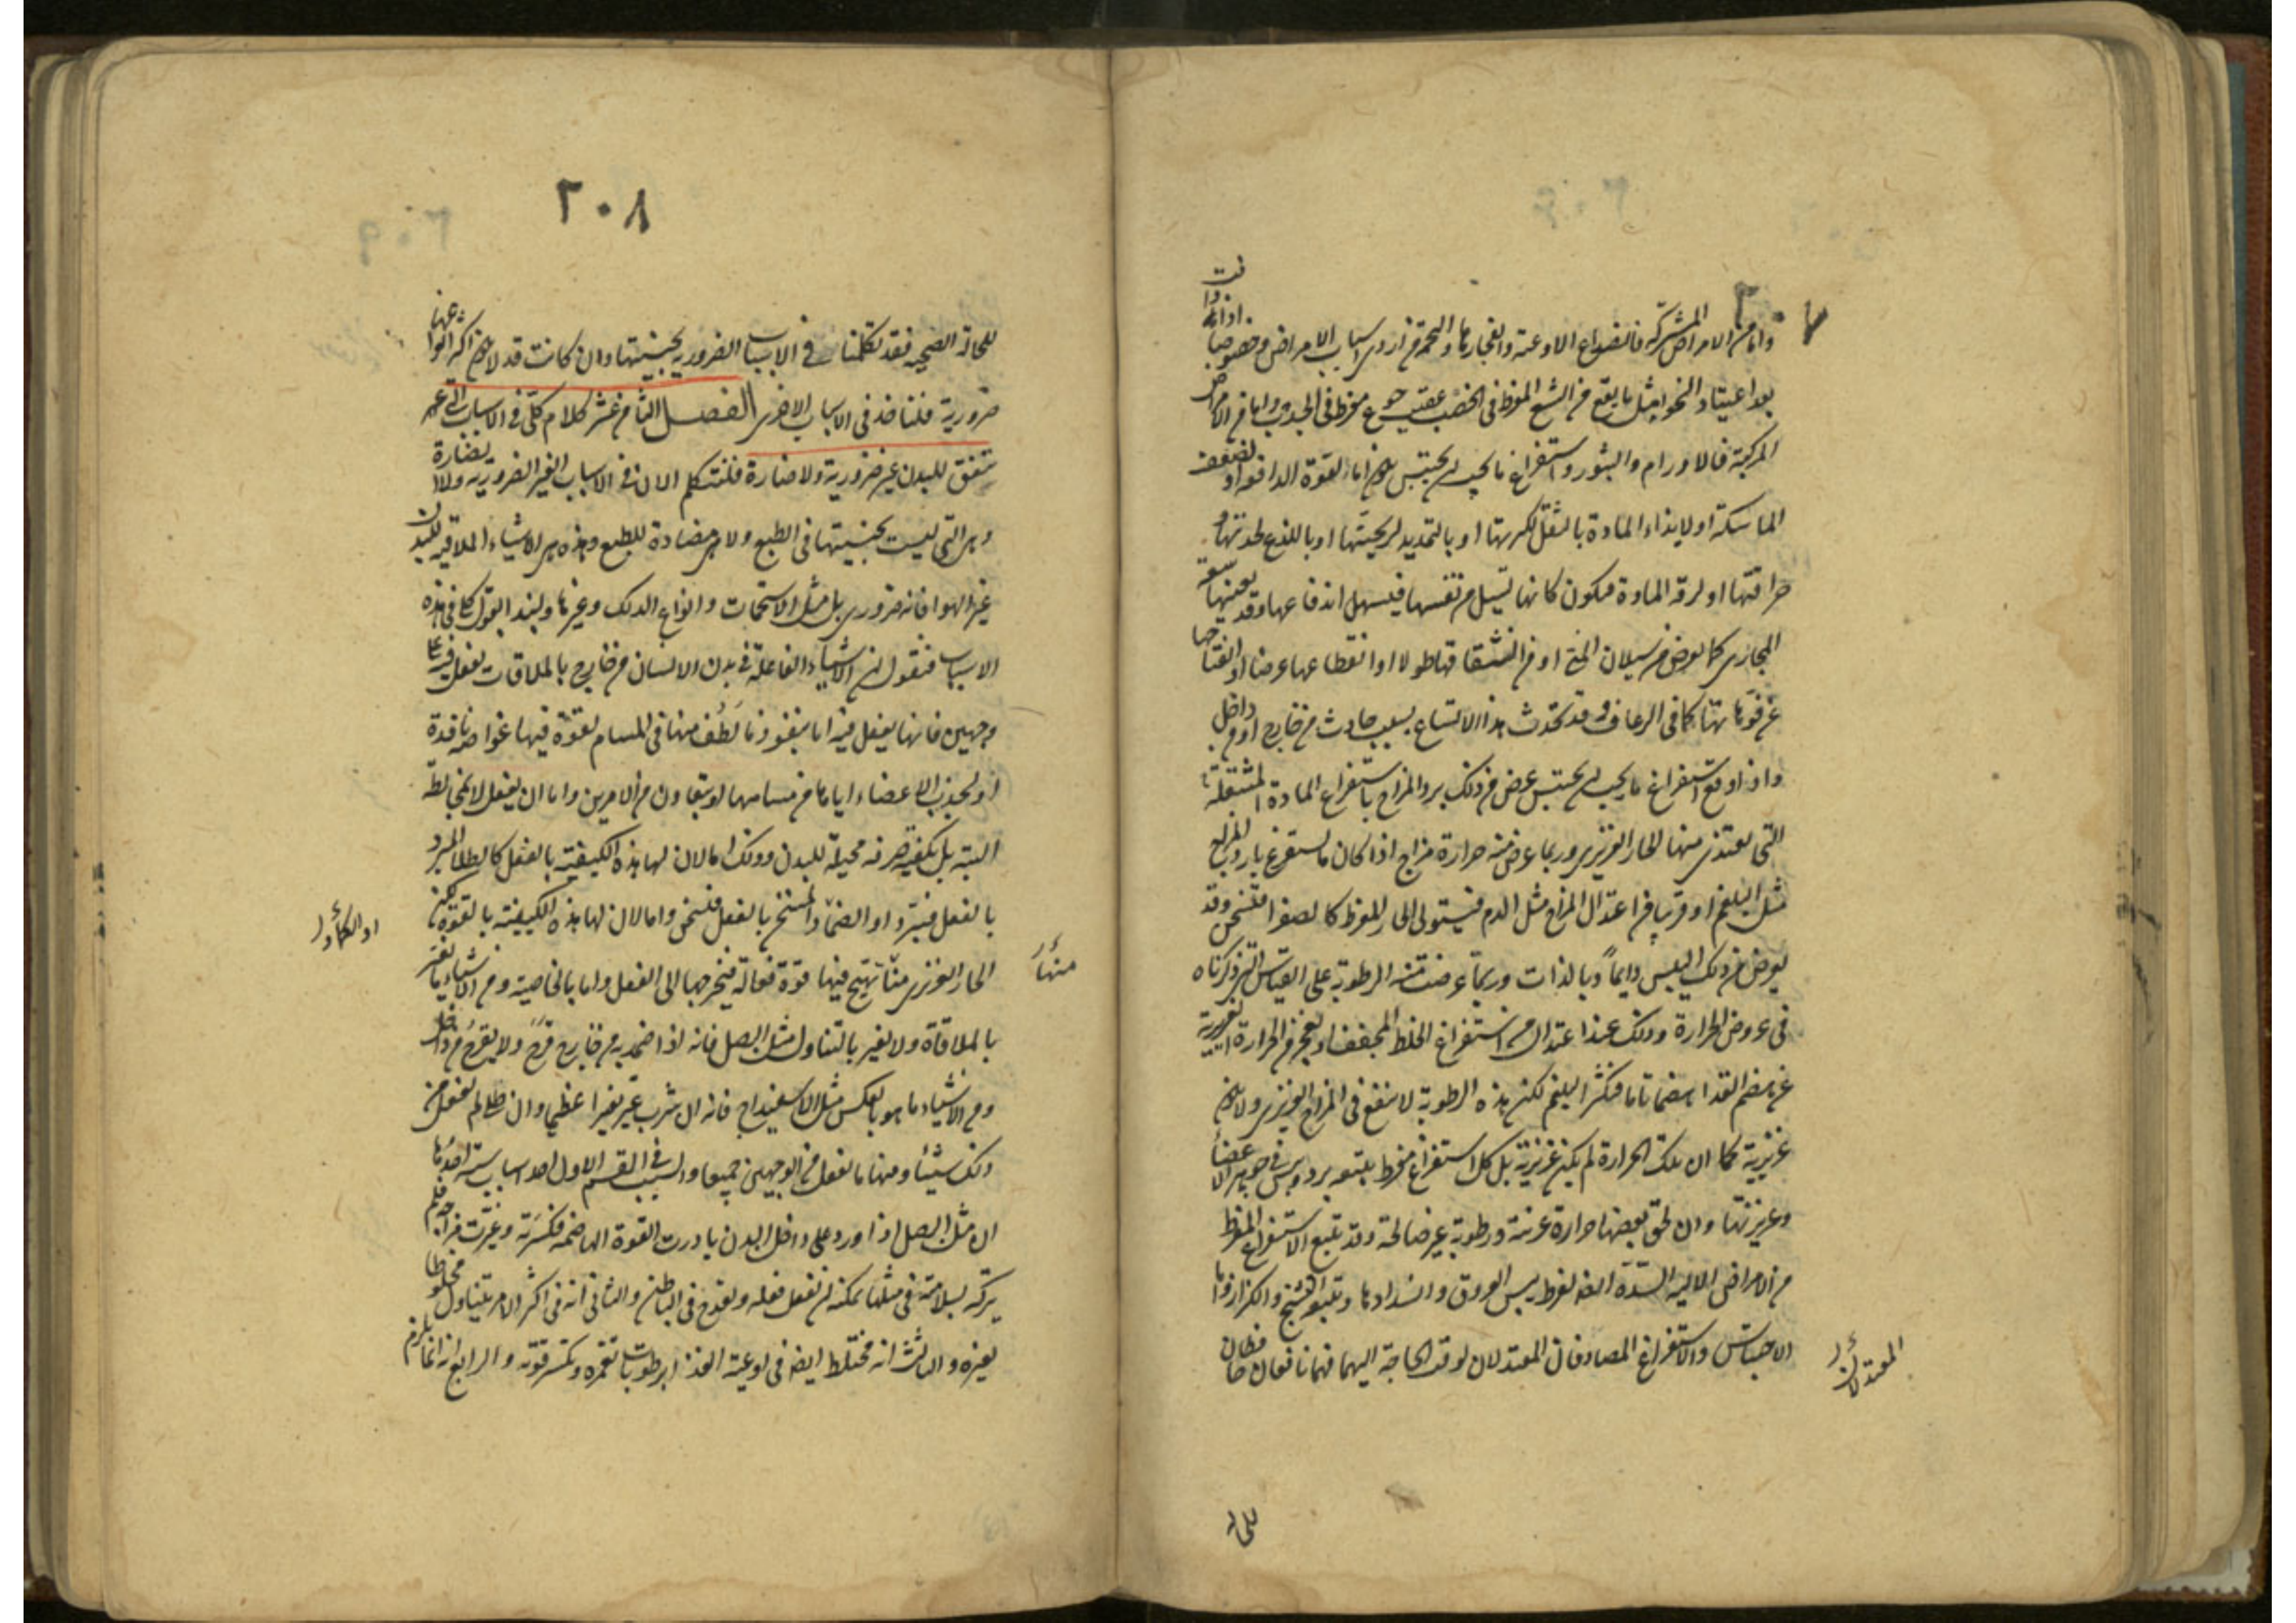 ٢٠٧
واما من الامراض المشتركة فانصداع الاوعية وانفجارها والتخمة من اردى اسباب الامراض وخصوصا اذا وافت
بعد اعتياد الخوا مثل ما يقع من الشبع المفرط فى الخصب عقيب جوع مفرط فى الجدب واما من الامراض
المركبة فالاورام والبثور واستفراغ ما يجب ان يحتبس يكون اما لقوة الدافعة او لضعف
الماسكة او لايذاء المادة بالثقل لكثرتها او بالتمديد لريحيتها او باللذع لحدتها و
حرافتها او لرقة المادة فيكون كانها تسيل من نفسها فيسهل اندفاعها وقد يعينها سعة
المجارى كما يعرض من سيلان المنى او من انشقاقها طولا او انقطاعها عرضا او انفتاحها
عن فوهاتها كما فى الرعاف وقد تحدث هذا الاتساع بسبب حادث من خارج او من داخل
واذا وقع استفراغ ما يجب ان يحتبس عرض من ذلك برد المزاج باستفراغ المادة المشتعلة
التى يغتذى منها الحار الغريزى وربما عرض منه حرارة مزاج اذا كان ما يستفرغ بارد المزاج
مثل البلغم او قريبا من اعتدال المزاج مثل الدم فيستولى الحار المفرط كالصفرا فتسخن وقد
يعرض من ذلك اليبس دايماً وبالذات وربما عرضت منه الرطوبة على القياس الذى ذكرناه
فى عروض الحرارة وذلك عند اعتدال من استفراغ الخلط المجفف او لعجز من الحرارة الغريزية
عن هضم الغذا هضما تاما فيكثر البلغم لكن هذه الرطوبة لا تنفع فى المزاج الغريزى ولا يكون
غريزية كما ان تلك الحرارة لم يكن غريزية بل كل استفراغ مفرط يتبعه برد ويبس فى جوهر الاعضاء
وغريزتها وان لحق بعضها حرارة غريبة ورطوبة غير صالحة وقد تتبع الاستفراغ المفرط
من الامراض الالية السدة ايضا لفرط يبس العروق وانسدادها ويتبعه التشنج والكزاز واما
الاحتباس والاستفراغ المصادفان المعتدلان لوقت الحاجة اليهما فهما نافعان حافظان
المعتدلان
للحالة
٢٠٨
للحالة الصحية فقد تكلمنا فى الاسباب الضرورية بجنسيتها وان كانت قد لا يكون اكثر انواعها
ضرورية فلناخذ فى الاسباب الاخرى الفصل الثامن عشر كلام كلى فى الاسباب التى
تتفق للبدن غير ضرورية ولا ضارة فلنتكلم الان فى الاسباب الغير الضرورية ولا الضارة
وهى التى ليست بجنسيتها فى الطبع ولا هى مضادة للطبع وهذه هى الاشياء الملاقية للبدن
غير الهوا فانه ضرورى بل مثل الاستحمامات وانواع الدلك وغيرها ولنبدا بقول كلى فى هذه
الاسباب فنقول ان الاشياء الفاعلة فى بدن الانسان من خارج بالملاقات تفعل فيه على
وجهين فانها يفعل فيه اما بنفوذ ما لطف منها فى المسام لقوة فيها غواصة نافذة
او لجذب الاعضاء اياها من مسامها او بتعاون من الامرين واما ان يفعل لا بمخالطة
البتة بل بكيفية صرفة محيلة للبدن وذلك اما لان لها هذه الكيفية بالفعل كالطلا المبرد
بالفعل فيبرد او الضماد المسخن بالفعل فيسخن واما لان لها هذه الكيفية بالقوة لكن
او الكماد
الحار الغريزى منا تهيج فيها قوة فعالة فيخرجها الى الفعل واما بالخاصية ومن الاشياء ما يغير
منها
بالملاقاة ولا يغير بالتناول مثل البصل فانه اذا ضمد به من خارج قرّح ولا يقرح من داخل
ومن الاشياء ما هو بالعكس مثل الاسفيداج فانه ان شرب غيّر تغيرا عظيما وان طلى لم يفعل من
ذلك شيئا ومنها ما يفعل من الوجهين جميعا والسبب فى القسم الاول احد اسباب ستة احدها
ان مثل البصل اذا ورد على داخل البدن بادرت القوة الهاضمة فكسرته وغيرت مزاجه فلم
يتركه بسلامته فى مثلها يمكنه ان يفعل فعله ويقدح فى الباطن والثانى انه فى اكثر الامر يتناول مخلوطا
بغيره والثالث انه مختلط ايضا فى اوعية الغذا برطوبات تغمره وتكسر قوته والرابع انه انما يلزم